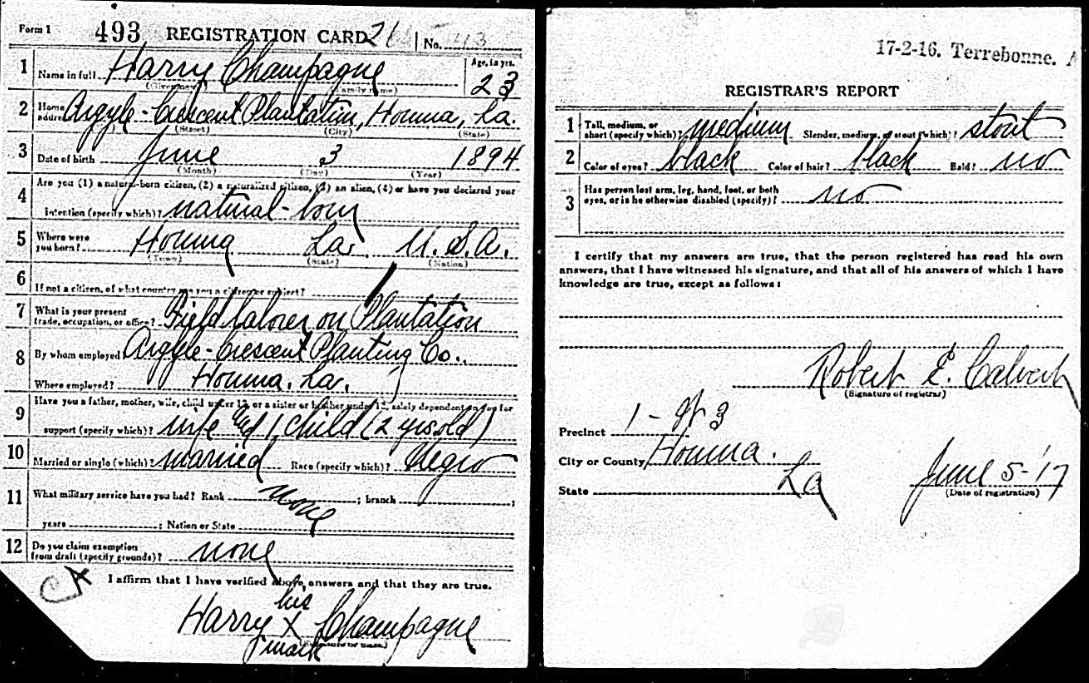 Form 1 493 REGISTRATION CARD 21 No. 43
1 Name in full Harry Champagne Age, in yrs. 23
(Given name) (Family name)
2 Home address Argyle-Crescent Plantation, Houma, La.
(Street) (City) (State)
3 Date of birth June 3 1894
(Month) (Day) (Year)
4 Are you (1) a natural-born citizen, (2) a naturalized citizen, (3) an alien, (4) or have you declared your
intention (specify which)? natural-born
5 Where were you born? Houma La. U.S.A.
(Town) (State) (Nation)
6 If not a citizen, of what country are you a citizen or subject?
7 What is your present trade, occupation, or office? Field laborer on Plantation
8 By whom employed Argyle-Crescent Planting Co.,
Where employed? Houma, La.
9 Have you a father, mother, wife, child under 12, or a sister or brother under 12, solely dependent on you for
support (specify which)? wife and 1 child (2 yrs old)
10 Married or single (which)? married Race (specify which)? Negro
11 What military service have you had? Rank none ; branch
years ; Nation or State
12 Do you claim exemption from draft (specify grounds)? none
I affirm that I have verified above answers and that they are true.
his
Harry X Champagne
mark
17-2-16. Terrebonne.
REGISTRAR'S REPORT
1 Tall, medium, or short (specify which)? medium Slender, medium, or stout (which)? stout
2 Color of eyes? black Color of hair? black Bald? no
3 Has person lost arm, leg, hand, foot, or both
eyes, or is he otherwise disabled (specify)? no
I certify that my answers are true, that the person registered has read his own
answers, that I have witnessed his signature, and that all of his answers of which I have
knowledge are true, except as follows:
Robert E. Calvert
(Signature of registrar)
Precinct 1 - of 3
City or County Houma.
State La June 5-17
(Date of registration)